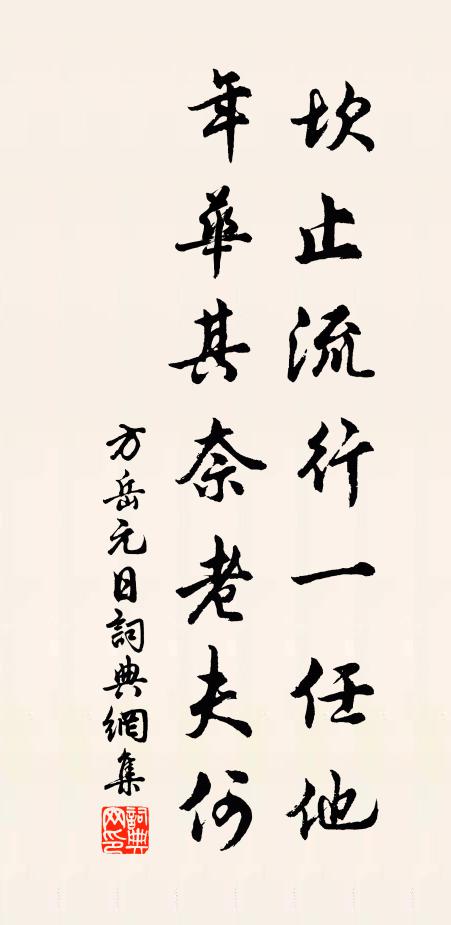 坎止流行一任他
年華其奈老夫何
方岳元日詞典網集
詞典
网印